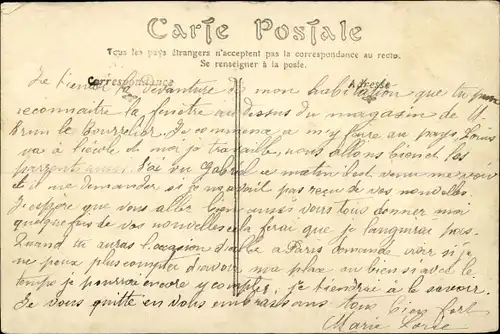 Carte Postale
Tous les pays étrangers n'acceptent pas la correspondance au recto.
Se renseigner à la poste.
Correspondance
Adresse
la devanture de mon habitation que tu peux
reconnaitre la fenêtre au dessus du magasin de
Brun le bourrelier. Je commence a m'y faire au pays, Louis
va à l'école et moi je travaille, nous allons bientot les
J'ai vu Gabriel ce matin est venu me voir
et a me demander si je navait pas recu de vos nouvelles
J'espère que vous aller bien aussi vous tous donner moi
quelques fois de vos nouvelles cela ferai que je languirai pas.
Quand tu auras l'occasion d'aller a Paris demande voir si je
ne peux plus compter d'avoir ma place ou bien si avec le
temps je pourrai encore y compter, je tiendrai à le savoir.
Je vous quitte en vous embrassant tous bien fort
Marie